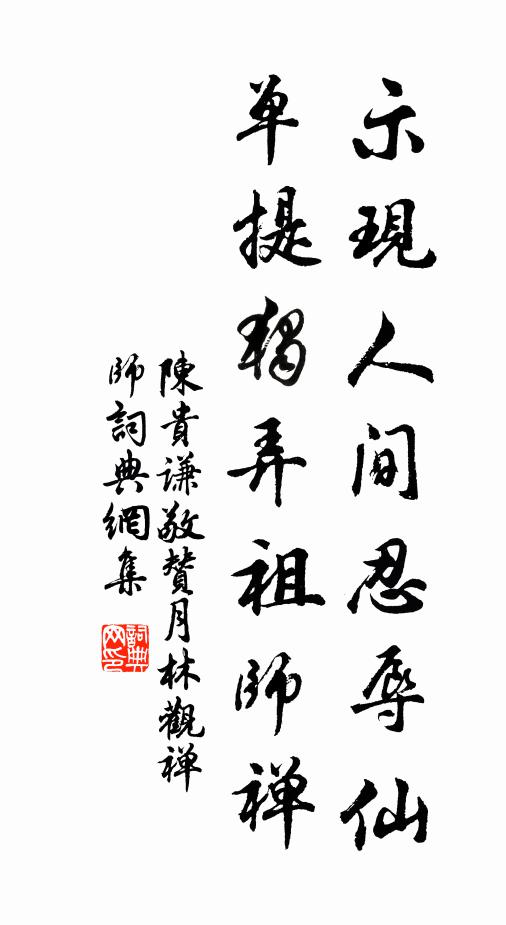 示現人间忍辱仙
单提獨弄祖師禅
陳貴谦敬贊月林觀禅
師詞典網集
詞典
网印